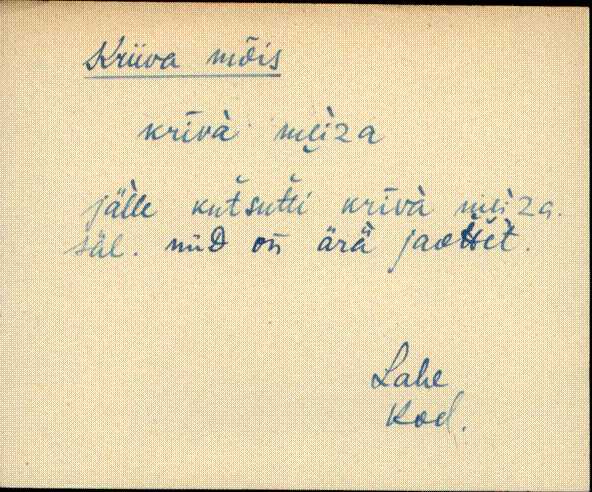 Kriiva mõis
krīvà mẹi̯za
jälle kut̆sut̆ti krīvà mẹi̯za.
säl. nüiD on ärä jaottet.
Lahe
Kod.